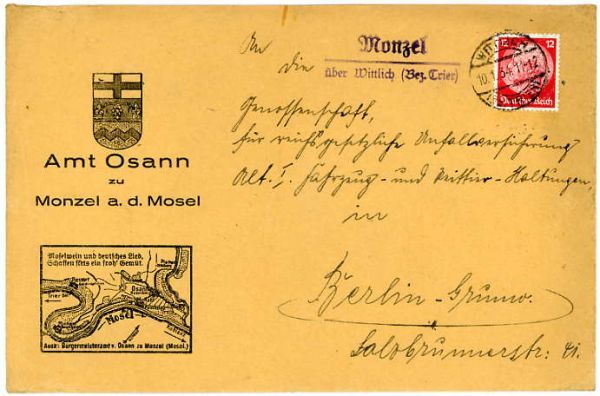 Amt Osann
zu
Monzel a. d. Mosel
Moselwein und deutsches Lied,
Schaffen stets ein froh' Gemüt.
Trier
Osann
Mosel
Ausk: Bürgermeisteramt v. Osann zu Monzel (Mosel.)
Monzel
über Wittlich (Bez. Trier)
12 12
Deutsches Reich
10.1.34. 11-12
An
die
Genossenschaft,
für reichsgesetzliche Unfallversicherung
Abt. I. Fahrzeug- und Reittier-Haltungen,
in
Berlin-Grunw.
Salzbrunnerstr: 41.